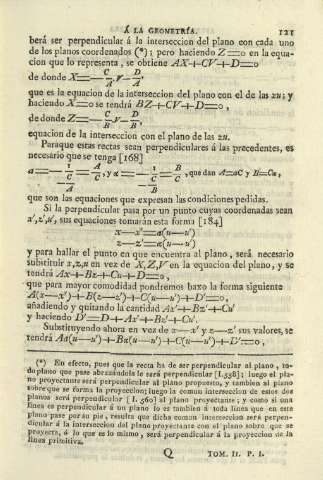 Á LA GEOMETRÍA. 121
berá ser perpendicular á la interseccion del plano con cada uno
de los planos coordenados (*); pero haciendo Z=o en la equa-
cion que lo representa, se obtiene AX+CV+D=o
de donde X=—C/A V—D/A,
que es la equacion de la interseccion del plano con el de las zu; y
haciendo X=o se tendrá BZ+CV+D=o,
de donde Z=—C/B V—D/B,
equacion de la interseccion con el plano de las zu.
Paraque estas rectas sean perpendiculares á las precedentes, es
necesario que se tenga [168]
a=—1/—C/A=A/C, y α=—1/—C/B=B/C, que dan A=aC y B=Cα,
que son las equaciones que expresan las condiciones pedidas.
Si la perpendicular pasa por un punto cuyas coordenadas sean
x',z',u', sus equaciones tomarán esta forma [184]
x—x'=a(u—u')
z—z'=α(u—u')
y para hallar el punto en que encuentra al plano, será necesario
substituir x,z,u en vez de X,Z,V en la equacion del plano, y se
tendrá Ax+Bz+Cu+D=o,
que para mayor comodidad pondremos baxo la forma siguiente
A(x—x')+B(z—z')+C(u—u')+D'=o,
añadiendo y quitando la cantidad Ax'+Bz'+Cu'
y haciendo D'=D+Ax'+Bz'+Cu'.
Substituyendo ahora en vez de x—x' y z—z' sus valores, se
tendrá Aa(u—u')+Bα(u—u')+C(u—u')+D'=o,
(*) En efecto, pues que la recta ha de ser perpendicular al plano, to-
do plano que pase abrazandola le será perpendicular [I.558]; luego el pla-
no proyectante será perpendicular al plano propuesto, y tambien al plano
sobre que se forma la proyeccion; luego la comun interseccion de estos dos
planos será perpendicular [I. 560] al plano proyectante; y como si una
línea es perpendicular á un plano lo es tambien á toda línea que en este
plano pase por su pie, resulta que dicha comun interseccion será perpen-
dicular á la interseccion del plano proyectante con el plano sobre que se
proyecta, ó lo que es lo mismo, será perpendicular á la proyeccion de la
línea primitiva.
Q TOM. II. P. I.